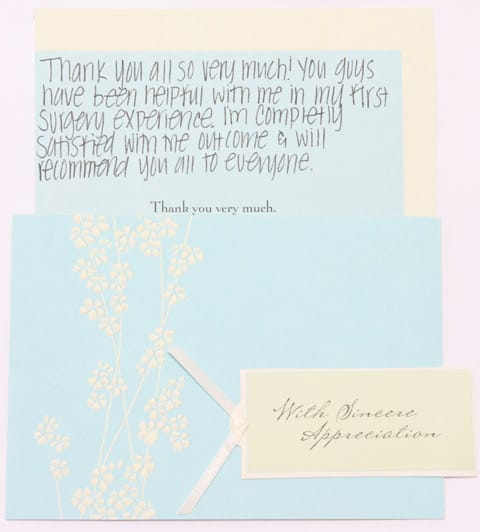 Thank you all so very much! You guys
have been helpful with me in my first
surgery experience. I'm completly
satisfied with the outcome & will
recommend you all to everyone.
Thank you very much.
With Sincere
Appreciation